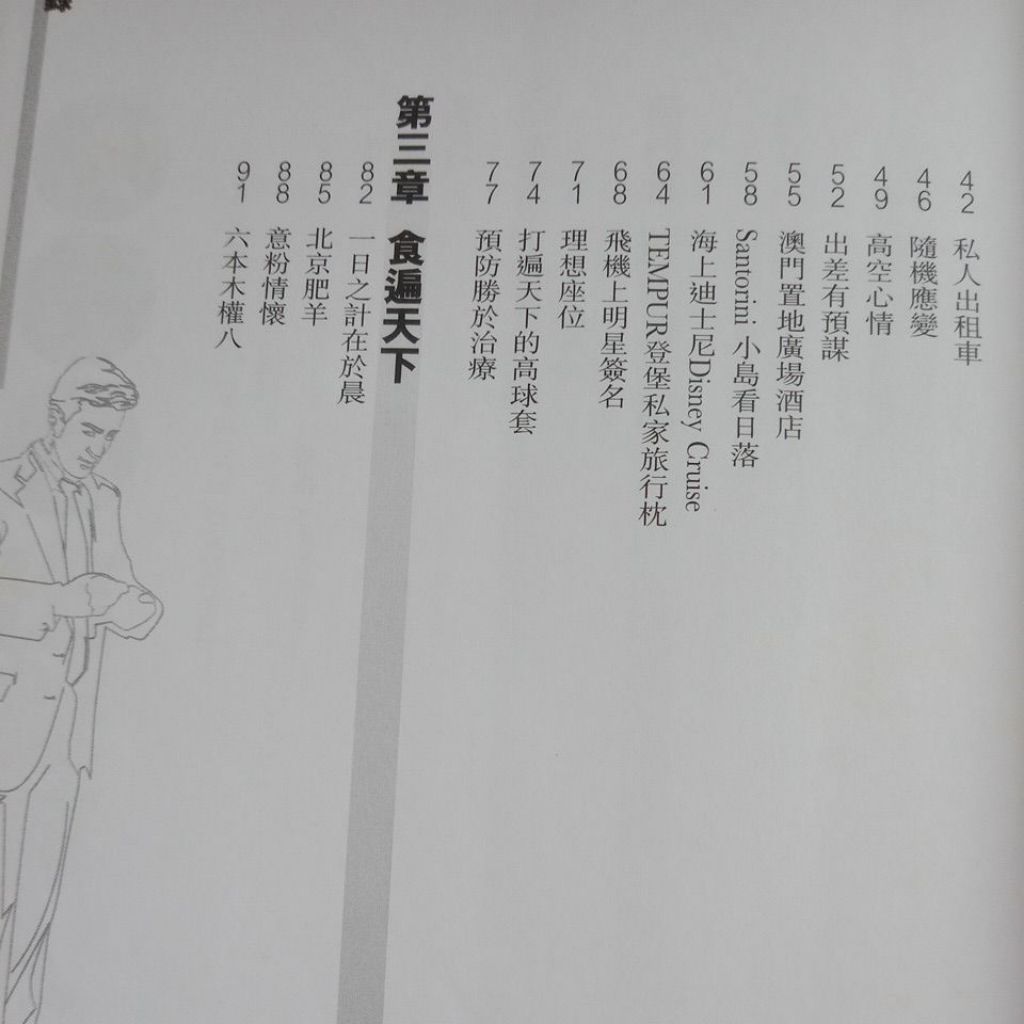 42 私人出租車
46 隨機應變
49 高空心情
52 出差有預謀
55 澳門置地廣場酒店
58 Santorini 小島看日落
61 海上迪士尼Disney Cruise
64 TEMPUR登堡私家旅行枕
68 飛機上明星簽名
71 理想座位
74 打遍天下的高球套
77 預防勝於治療
第三章 食遍天下
82 一日之計在於晨
85 北京肥羊
88 意粉情懷
91 六本木權八